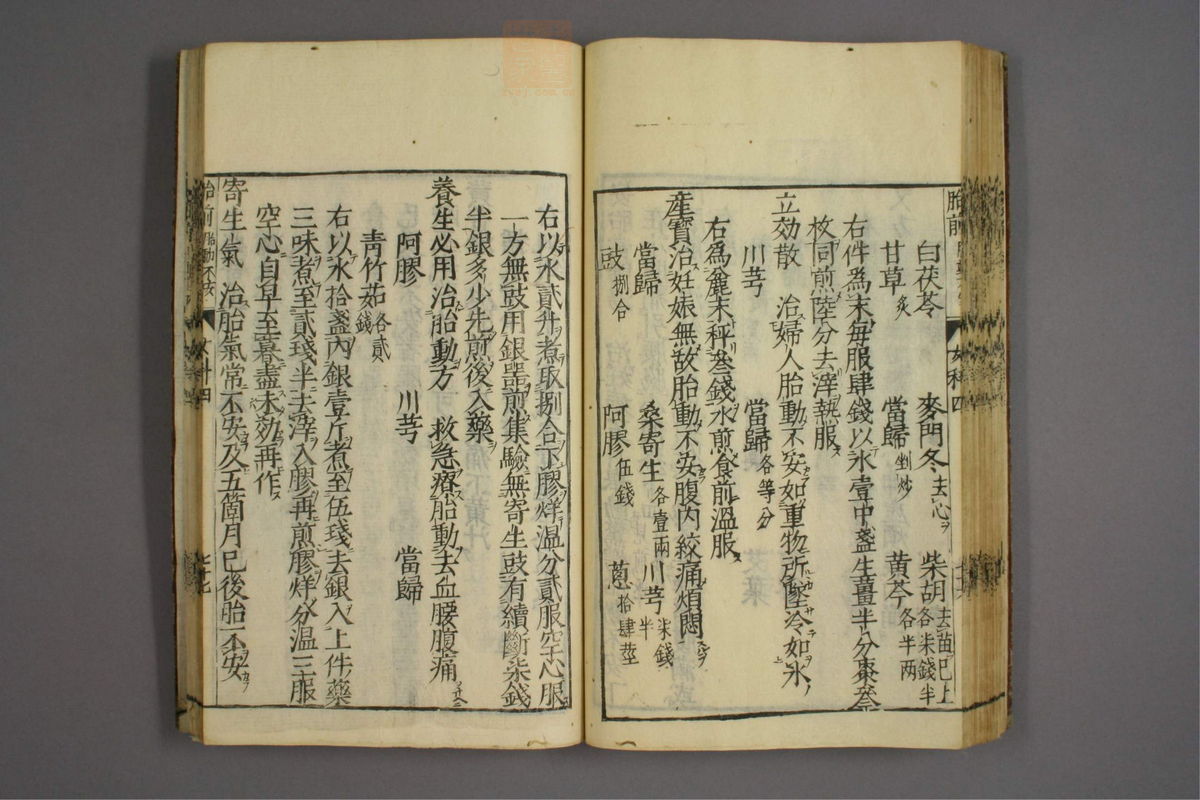 白茯苓 麥門冬去心 柴胡去苗已上各柒錢半
甘草炙 當歸剉炒 黄芩各半两
右件為末毎服肆錢以水壹中盞生薑半分棗叄
枚同煎陸分去滓熱服
立効散 治婦人胎動不安如重物所墜冷如氷
川芎 當歸各等分
右為麄末秤叄錢水煎食前溫服
産寶治妊娠無故胎動不安腹内絞痛煩悶
當歸 桑寄生各壹兩 川芎柒錢半
豉捌合 阿膠伍錢 蔥拾肆莖
右以水貳升煮取捌合下膠烊温分貳服空心服
一方無豉用銀器煎集驗無寄生豉有續斷柒錢
半銀多少先煎後入藥
養生必用治胎動方 救急療胎動去血腰腹痛
阿膠 川芎 當歸
青竹茹各貳錢
右以水拾盞内銀壹斤煮至伍琖去銀入上件藥
三味煮至貳琖半去滓入膠再煎膠烊分温三服
空心自早至暮盡未効再作
寄生氣 治胎氣常不安及五箇月已後胎不安
胎前
女科四
胎前 胎動不安
女科四